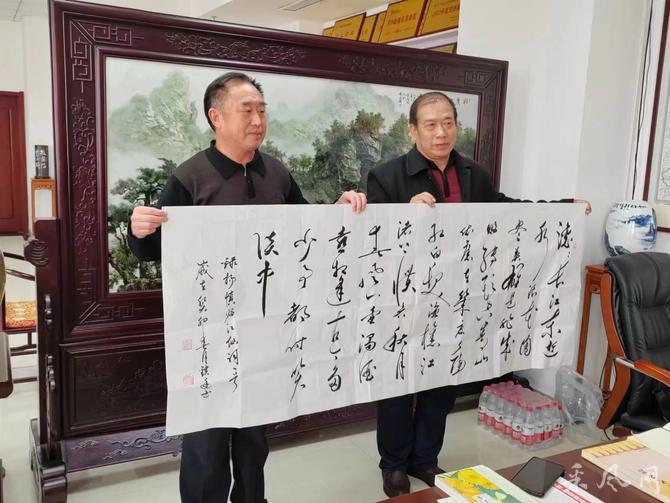 滚々长江东逝
水浪花淘
尽英雄是非成
败转头空青山
依旧在几度夕阳
红白发渔樵江
渚上惯看秋月
春风一壶浊酒
喜相逢古今多
少事都付笑
谈中
录杨慎临江仙词一首
岁在癸卯
采风网